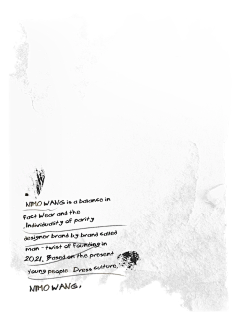 NIMO WANG is a balance in
Fact Wear and the
Individuality of parity
designer brand by brand called
man-twist of founding in
2021, Based on the present
Young people Dress culture,
NIMO WANG,